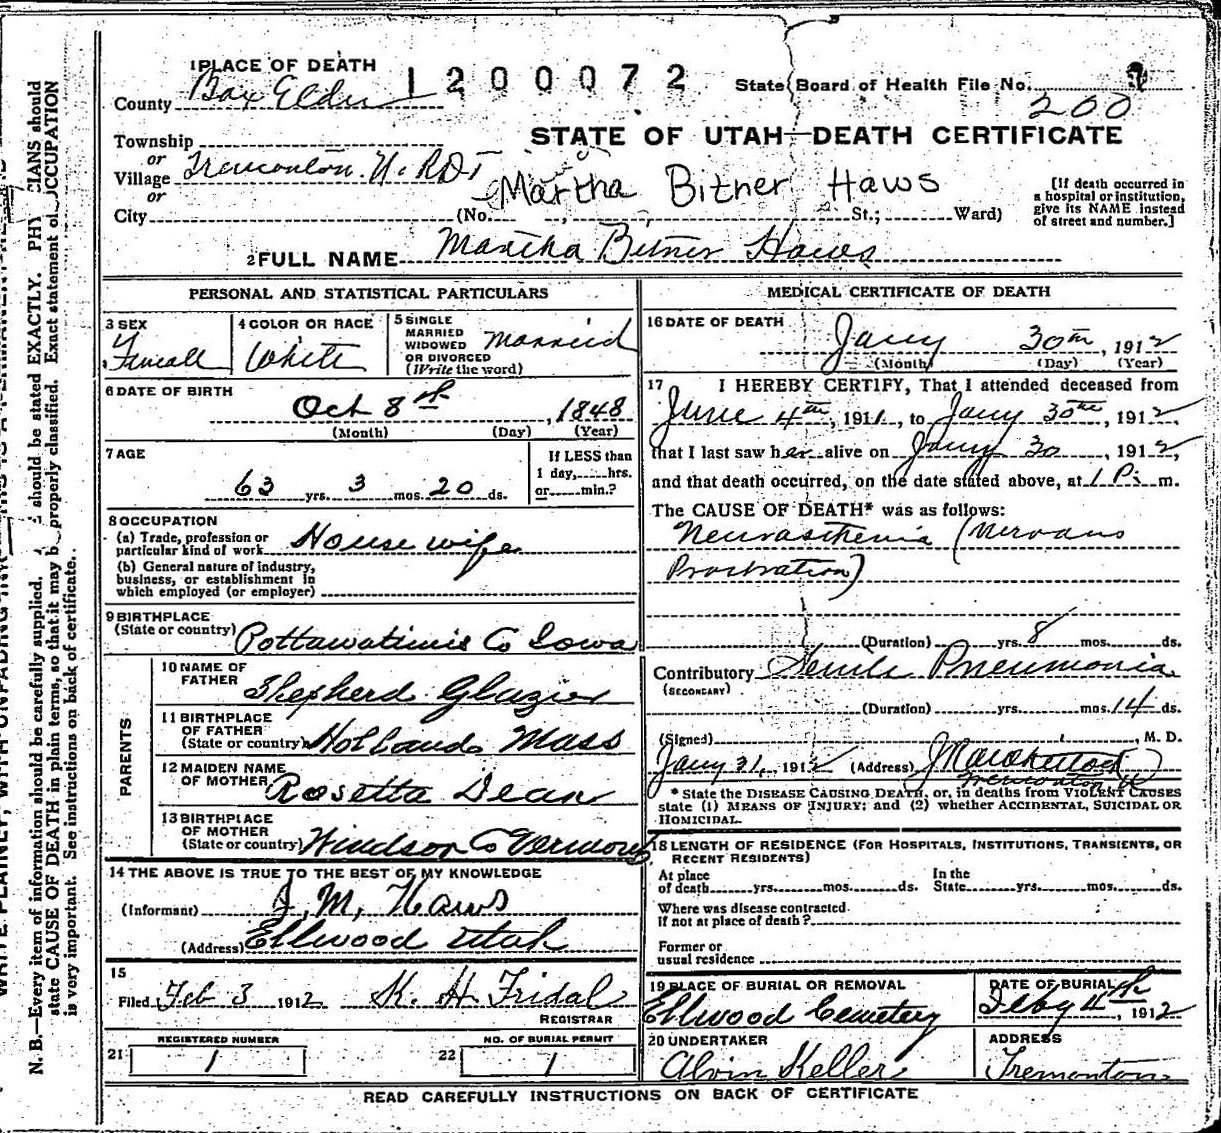 1 PLACE OF DEATH
1200072
State Board of Health File No.
County Box Elder
200
STATE OF UTAH—DEATH CERTIFICATE
Township
or
Village Tremonton
or
Martha Bitner Haws
City (No. , St.; Ward)
[If death occurred in
a hospital or institution,
give its NAME instead
of street and number.]
2 FULL NAME Martha Bitner Haws
PERSONAL AND STATISTICAL PARTICULARS
3 SEX
Female
4 COLOR OR RACE
White
5 SINGLE
MARRIED
WIDOWED
OR DIVORCED
(Write the word)
Married
6 DATE OF BIRTH
Oct 8th, 1848
(Month) (Day) (Year)
7 AGE
63 yrs. 3 mos. 20 ds.
If LESS than
1 day, hrs.
or min.?
8 OCCUPATION
(a) Trade, profession or
particular kind of work House wife
(b) General nature of industry,
business, or establishment in
which employed (or employer)
9 BIRTHPLACE
(State or country) Pottawatimis Co Iowa
PARENTS
10 NAME OF
FATHER Shepherd Glazier
11 BIRTHPLACE
OF FATHER
(State or country) Hollands Mass
12 MAIDEN NAME
OF MOTHER Rosetta Dean
13 BIRTHPLACE
OF MOTHER
(State or country) Windsor Co Vermont
14 THE ABOVE IS TRUE TO THE BEST OF MY KNOWLEDGE
(Informant) J. M. Haws
(Address) Ellwood Utah
15
Filed Feb 3 1912 K. H. Fridal
REGISTRAR
REGISTERED NUMBER
21 1
NO. OF BURIAL PERMIT
22 1
MEDICAL CERTIFICATE OF DEATH
16 DATE OF DEATH
Jany 30th, 1912
(Month) (Day) (Year)
17 I HEREBY CERTIFY, That I attended deceased from
June 4th, 1911, to Jany 30th, 1912,
that I last saw her alive on Jany 30, 1912,
and that death occurred, on the date stated above, at 1 P. m.
The CAUSE OF DEATH* was as follows:
Neurasthenia (Nervous
Prostration)
(Duration) yrs. 8 mos. ds.
Contributory Senile Pneumonia
(SECONDARY)
(Duration) yrs. mos. 14 ds.
(Signed) , M. D.
Jany 31, 1912 (Address)
Tremonton
* State the DISEASE CAUSING DEATH, or, in deaths from VIOLENT CAUSES
state (1) MEANS OF INJURY; and (2) whether ACCIDENTAL, SUICIDAL OR
HOMICIDAL.
18 LENGTH OF RESIDENCE (FOR HOSPITALS, INSTITUTIONS, TRANSIENTS, OR
RECENT RESIDENTS)
At place
of death yrs. mos. ds.
In the
State yrs. mos. ds.
Where was disease contracted
If not at place of death?
Former or
usual residence
19 PLACE OF BURIAL OR REMOVAL
Ellwood Cemetery
DATE OF BURIAL
Feby 4th, 1912
20 UNDERTAKER
Alvin Keller
ADDRESS
Tremonton
READ CAREFULLY INSTRUCTIONS ON BACK OF CERTIFICATE
N. B.—Every item of information should be carefully supplied. should be stated EXACTLY. PHYSICIANS should
state CAUSE OF DEATH in plain terms, so that it may be properly classified. Exact statement of OCCUPATION
is very important. See instructions on back of certificate.